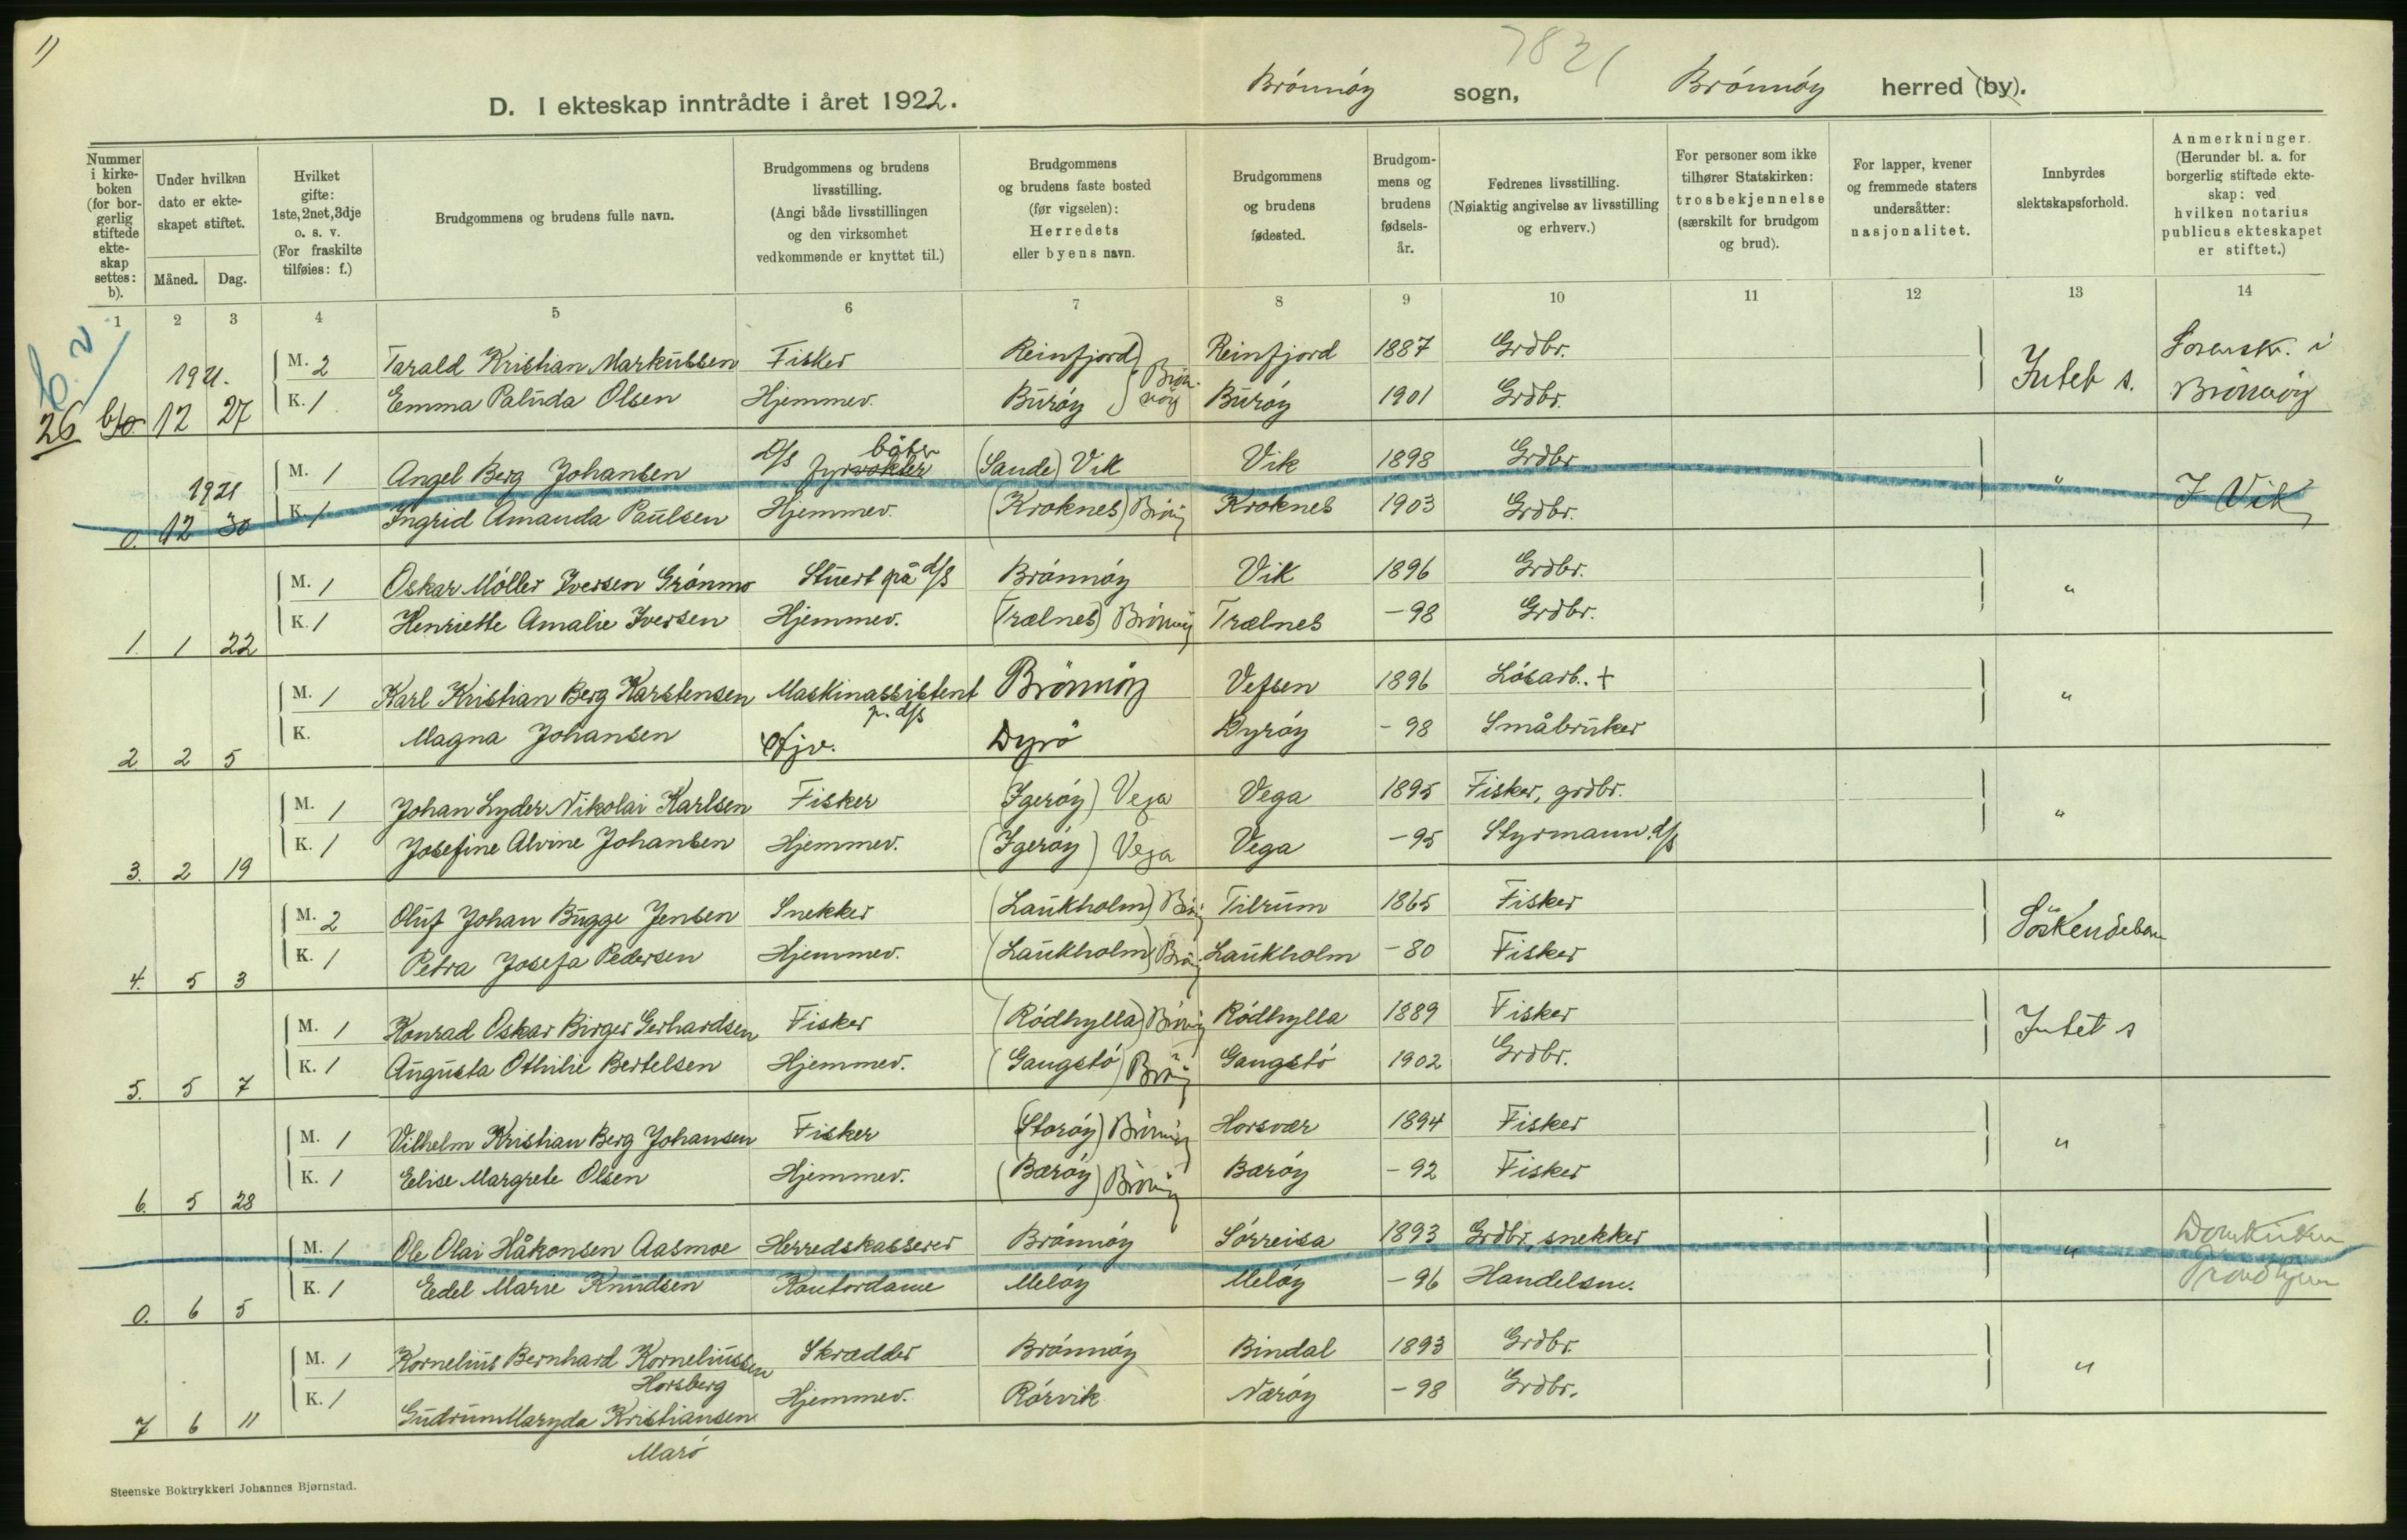 1)
7821
D. I ekteskap inntrådte i året 1922.
Brönnöy sogn, Brönnöy herred (by).
Nummer i kirke-boken (for bor-gerlig stiftede ekte-skap settes: b).
Under hvilken dato er ekte-skapet stiftet.
Måned. Dag.
Hvilket gifte: 1ste, 2net, 3dje o. s. v. (For fraskilte tilføies: f.)
Brudgommens og brudens fulle navn.
Brudgommens og brudens livsstilling. (Angi både livsstillingen og den virksomhet vedkommende er knyttet til.)
Brudgommens og brudens faste bosted (før vigselen): Herredets eller byens navn.
Brudgommens og brudens fødested.
Brudgom-mens og brudens fødsels-år.
Fedrenes livsstilling. (Nøiaktig angivelse av livsstilling og erhverv.)
For personer som ikke tilhører Statskirken: trosbekjennelse (særskilt for brudgom og brud).
For lapper, kvener og fremmede staters undersåtter: nasjonalitet.
Innbyrdes slektskapsforhold.
Anmerkninger. (Herunder bl. a. for borgerlig stiftede ekte-skap: ved hvilken notarius publicus ekteskapet er stiftet.)
1 2 3 4 5 6 7 8 9 10 11 12 13 14
b. v
1921. M. 2 Tarald Kristian Markussen Fisker Reinfjord Brön-nöy Reinfjord 1887 Grdbr. Intet s. Sorenskr. i
26 12 27 K. 1 Emma Palüda Olsen Hjemmev. Büröy Büröy 1901 Grdbr. Brönnöy
1921 M. 1 Angel Berg Johansen D/s fyrvokter böter (Sande) Vik Vik 1898 Grdbr. " I Vik
0. 12 30 K. 1 Ingrid Amanda Paülsen Hjemmev. (Kroknes) Brön Kroknes 1903 Grdbr.
M. 1 Oskar Möller Iversen Grönmo Stüert på d/s Brönnöy Vik 1896 Grdbr. "
1. 1 22 K. 1 Henriette Amalie Iversen Hjemmev. (Trælnes) Brönnöy Trælnes -98 Grdbr.
M. 1 Karl Kristian Berg Karstensen Maskinassistent p. d/s Brönnöy Vefsen 1896 Lösarb. + "
2 2 5 K. Magna Johansen Hjv. Dyrö Dyröy -98 Småbrüker
M. 1 Johan Lyder Nikolai Karlsen Fisker (Igeröy) Vega Vega 1895 Fisker, grdbr. "
3. 2 19 K. 1 Josefine Alvine Johansen Hjemmev. (Igeröy) Vega Vega -95 Styrmann d/s
M. 2 Olüf Johan Bügge Jensen Snekker (Laükholm) Brön Tilrüm 1865 Fisker Söskendebarn
4. 5 3 K. 1 Petra Josefa Pedersen Hjemmev. (Laükholm) Brön Laükholm -80 Fisker
M. 1 Konrad Oskar Birger Gerhardsen Fisker (Rödhylla) Brönnöy Rödhylla 1889 Fisker Intet s
5. 5 7 K. 1 Aügüsta Othilie Bertelsen Hjemmev. (Gangstö) Brön Gangstö 1902 Grdbr.
M. 1 Vilhelm Kristian Berg Johansen Fisker (Storöy) Brönnöy Horsvær 1894 Fisker "
6. 5 28 K. 1 Elise Margrete Olsen Hjemmev. (Bæröy) Brönnöy Bæröy -92 Fisker
M. 1 Ole Olai Håkonsen Aasmoe Herredskasserer Brönnöy Sörreisa 1893 Grdbr, snekker " Domkirken
0. 6 5 K. 1 Edel Marie Knüdsen Kontordame Melöy Melöy -96 Handelsm. Trondhjem
M. 1 Kornelius Bernhard Korneliüssen Horsberg Skrædder Brönnöy Bindal 1893 Grdbr. "
7 6 11 K. 1 Güdrün Maryda Kristiansen Marö Hjemmev. Rörvik Næröy -98 Grdbr.
Steenske Boktrykkeri Johannes Bjørnstad.